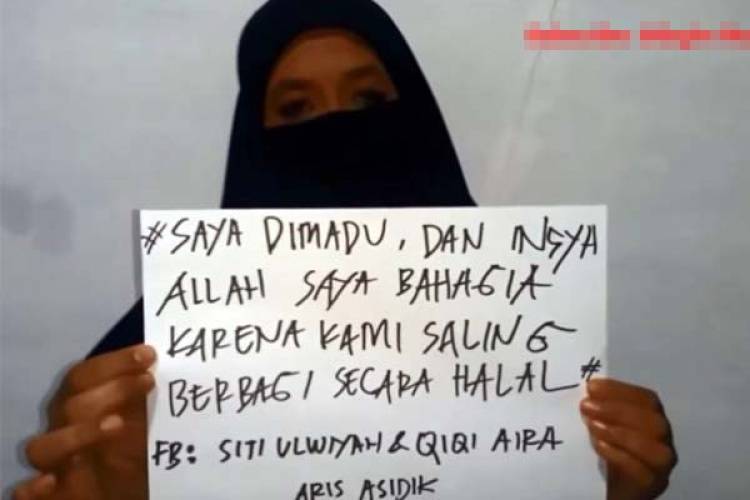 #SAYA DIMADU, DAN INSYA
ALLAH SAYA BAHAGIA
KARENA KAMI SALING
BERBAGI SECARA HALAL#
FB: SITI ULWIYAH & QIQI AIRA
ARIS ASIDIK